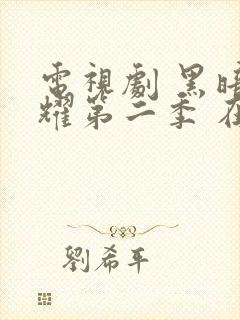 電視劇 黑暗
耀第二季 在
劉希平